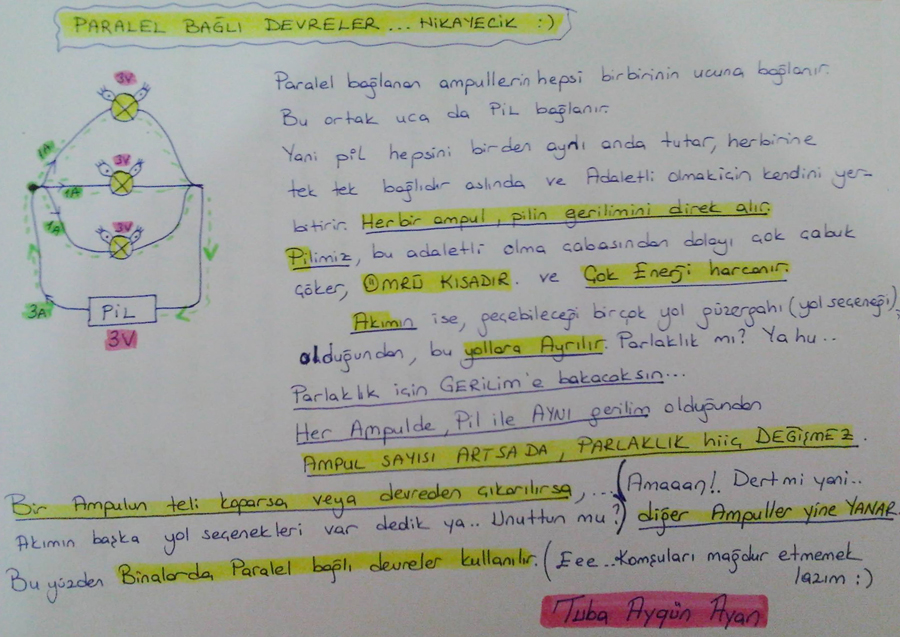 PARALEL BAĞLI DEVRELER... HİKAYECİK :)
3V
3V
3V
1A
1A
1A
3A
PİL
3V
Paralel bağlanan ampullerin hepsi birbirinin ucuna bağlanır.
Bu ortak uca da PİL bağlanır.
Yani pil hepsini birden aynı anda tutar, herbirine
tek tek bağlıdır aslında ve Adaletli olmak için kendini yer-
bitirir. Herbir ampul, pilin gerilimini direk alır.
Pilimiz, bu adaletli olma çabasından dolayı çok çabuk
çöker, ÖMRÜ KISADIR. ve Çok Enerji harcanır.
Akımın ise, geçebileceği birçok yol güzergahı (yol seçeneği),
olduğundan, bu yollara Ayrılır. Parlaklık mı? Ya hu..
Parlaklık için GERİLİM'e bakacaksın...
Her Ampulde, Pil ile AYNI gerilim olduğundan
AMPUL SAYISI ARTSA DA, PARLAKLIK hiiç DEĞİŞMEZ.
Bir Ampulun teli koparsa veya devreden çıkarılırsa, ... (Amaaan!. Dert mi yani..
Akımın başka yol seçenekleri var dedik ya.. Unuttun mu?) diğer Ampuller yine YANAR.
Bu yüzden Binalarda Paralel bağlı devreler kullanılır. (Eee.. Komşuları mağdur etmemek
lazım :)
Tuba Aygün Ayan